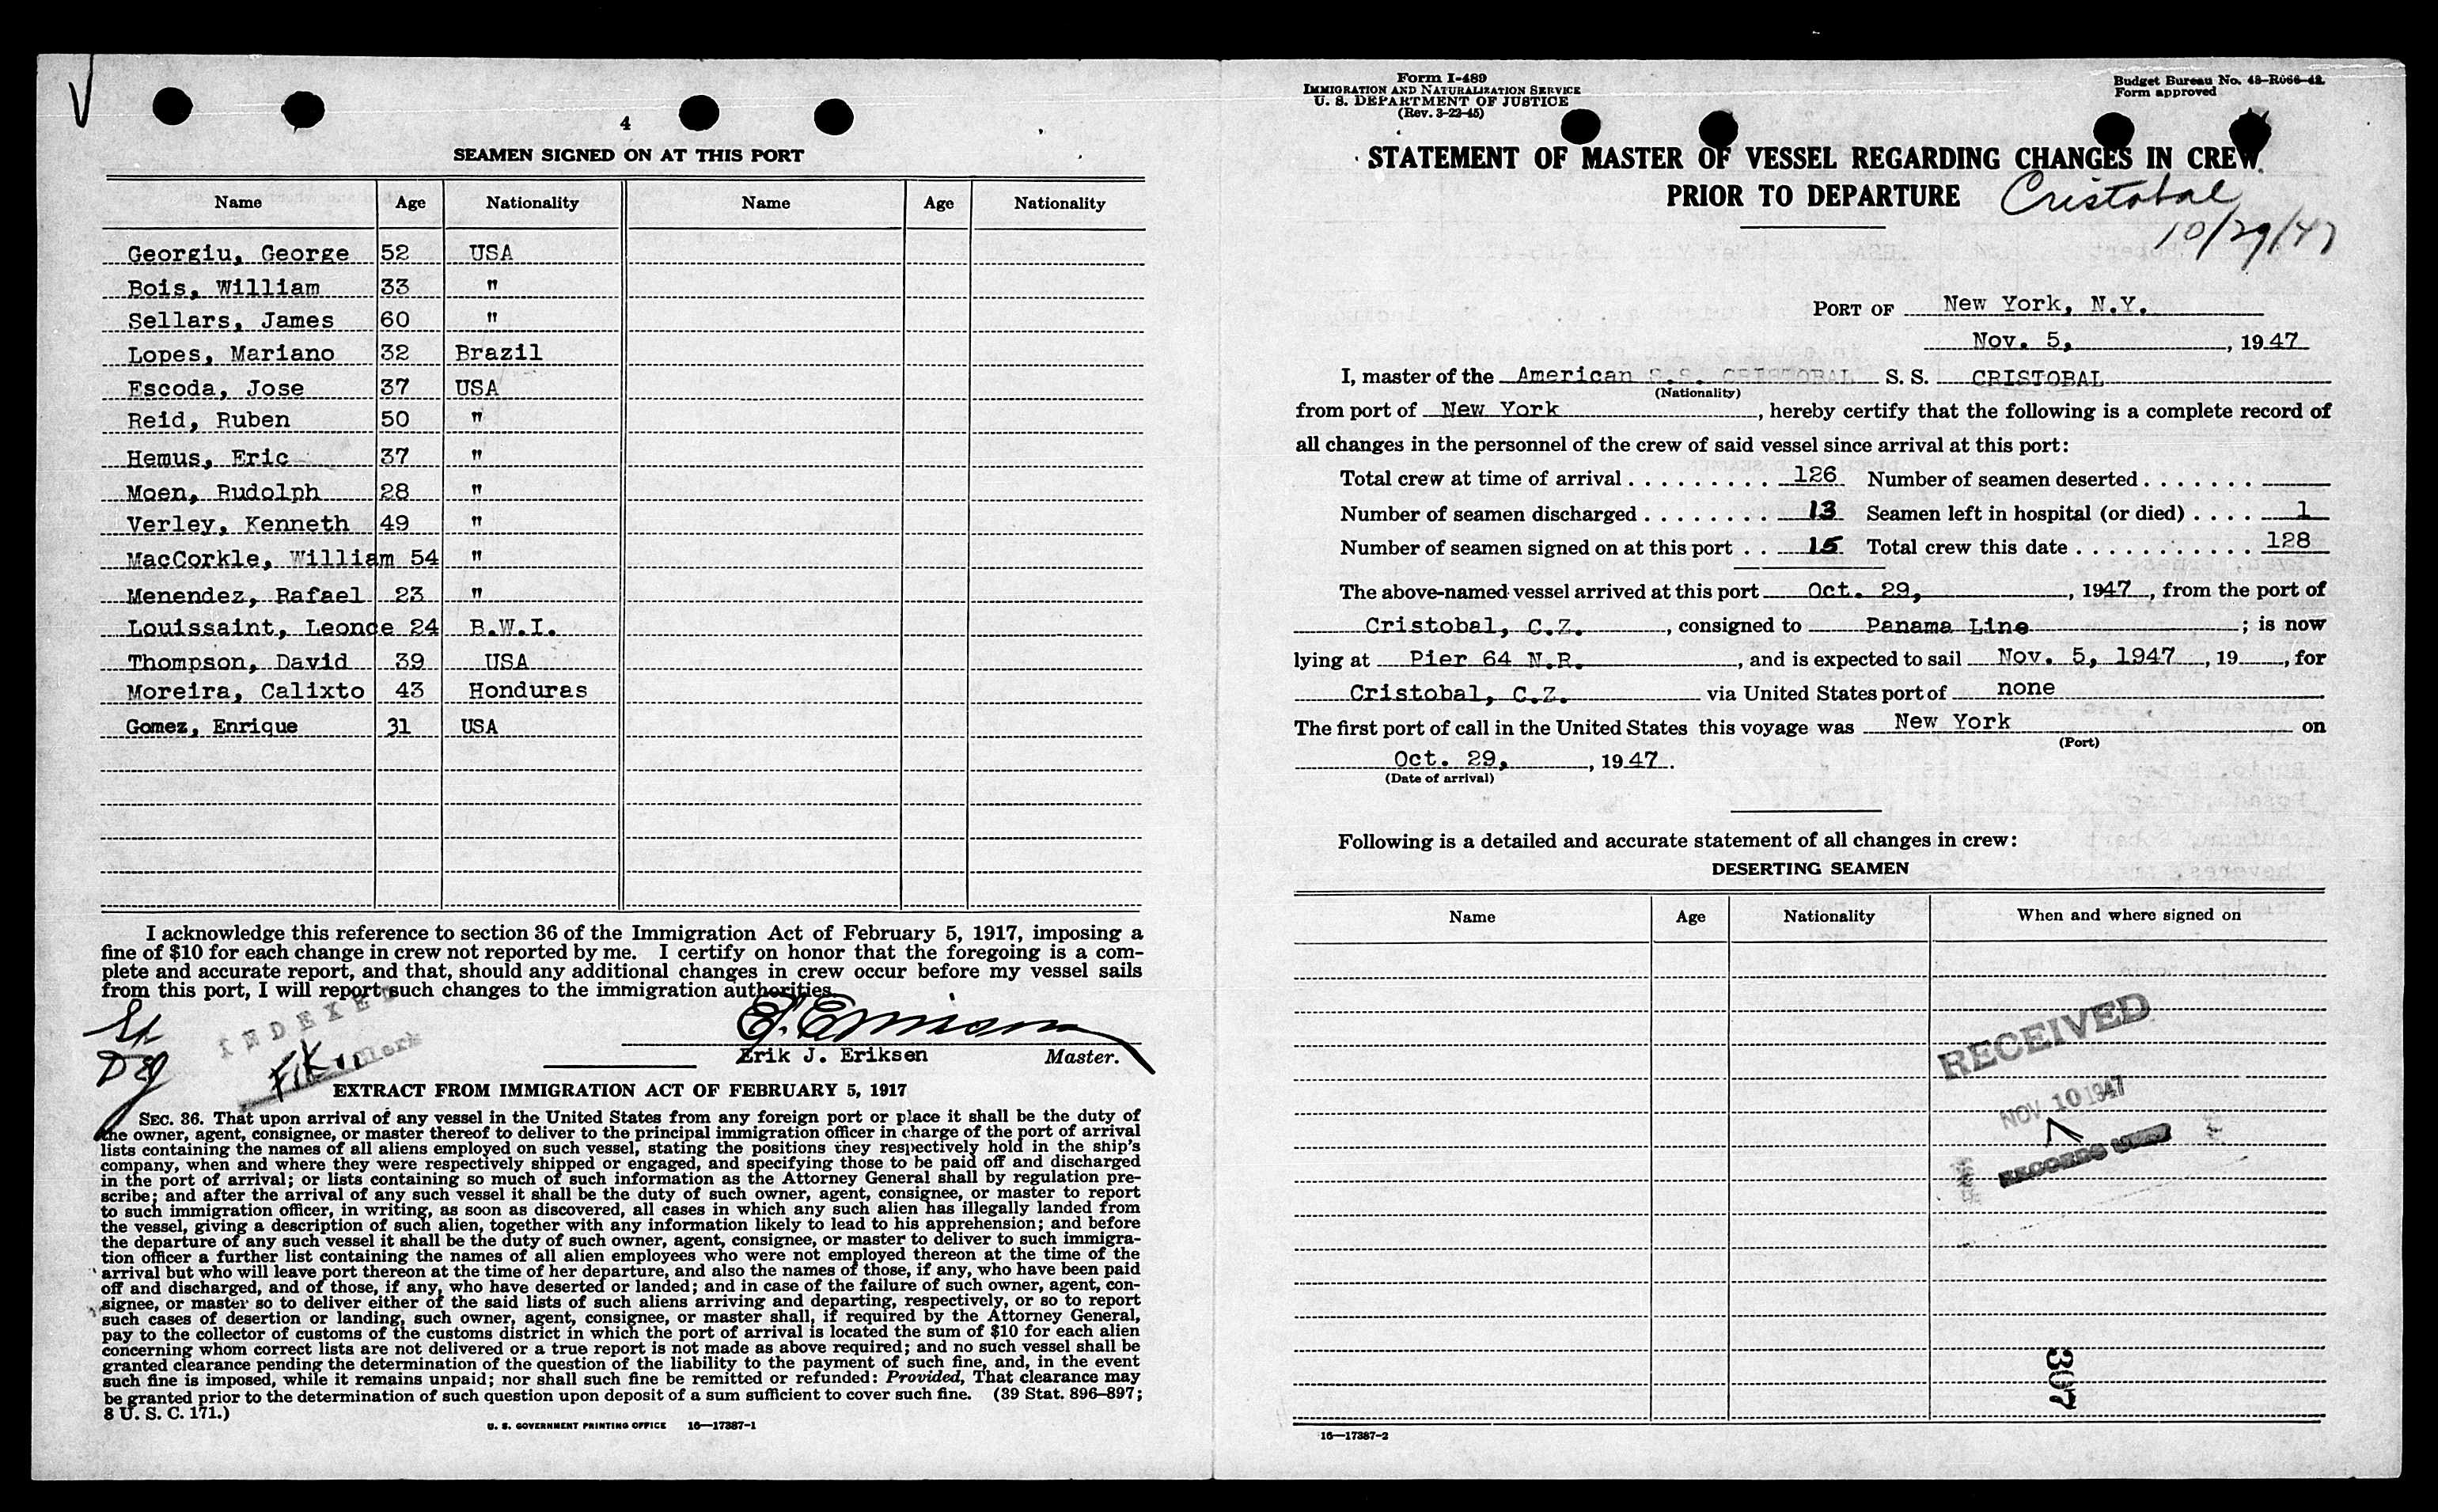 4
SEAMEN SIGNED ON AT THIS PORT
Name Age Nationality Name Age Nationality
Georgiu, George 52 USA
Bois, William 33 "
Sellars, James 60 "
Lopes, Mariano 32 Brazil
Escoda, Jose 37 USA
Reid, Ruben 50 "
Hemus, Eric 37 "
Moen, Rudolph 28 "
Verley, Kenneth 49 "
MacCorkle, William 54 "
Menendez, Rafael 23 "
Louissaint, Leonce 24 B.W.I.
Thompson, David 39 USA
Moreira, Calixto 43 Honduras
Gomez, Enrique 31 USA
I acknowledge this reference to section 36 of the Immigration Act of February 5, 1917, imposing a
fine of $10 for each change in crew not reported by me. I certify on honor that the foregoing is a com-
plete and accurate report, and that, should any additional changes in crew occur before my vessel sails
from this port, I will report such changes to the immigration authorities.
INDEXED
Erik J. Eriksen Master.
EXTRACT FROM IMMIGRATION ACT OF FEBRUARY 5, 1917
SEC. 36. That upon arrival of any vessel in the United States from any foreign port or place it shall be the duty of
the owner, agent, consignee, or master thereof to deliver to the principal immigration officer in charge of the port of arrival
lists containing the names of all aliens employed on such vessel, stating the positions they respectively hold in the ship's
company, when and where they were respectively shipped or engaged, and specifying those to be paid off and discharged
in the port of arrival; or lists containing so much of such information as the Attorney General shall by regulation pre-
scribe; and after the arrival of any such vessel it shall be the duty of such owner, agent, consignee, or master to report
to such immigration officer, in writing, as soon as discovered, all cases in which any such alien has illegally landed from
the vessel, giving a description of such alien, together with any information likely to lead to his apprehension; and before
the departure of any such vessel it shall be the duty of such owner, agent, consignee, or master to deliver to such immigra-
tion officer a further list containing the names of all alien employees who were not employed thereon at the time of the
arrival but who will leave port thereon at the time of her departure, and also the names of those, if any, who have been paid
off and discharged, and of those, if any, who have deserted or landed; and in case of the failure of such owner, agent, con-
signee, or master so to deliver either of the said lists of such aliens arriving and departing, respectively, or so to report
such cases of desertion or landing, such owner, agent, consignee, or master shall, if required by the Attorney General,
pay to the collector of customs of the customs district in which the port of arrival is located the sum of $10 for each alien
concerning whom correct lists are not delivered or a true report is not made as above required; and no such vessel shall be
granted clearance pending the determination of the question of the liability to the payment of such fine, and, in the event
such fine is imposed, while it remains unpaid; nor shall such fine be remitted or refunded: Provided, That clearance may
be granted prior to the determination of such question upon deposit of a sum sufficient to cover such fine. (39 Stat. 896–897;
8 U. S. C. 171.)
U. S. GOVERNMENT PRINTING OFFICE 16—17387-1
Form I-489
IMMIGRATION AND NATURALIZATION SERVICE
U. S. DEPARTMENT OF JUSTICE
(Rev. 3-22-45)
Budget Bureau No. 43-R066-42.
Form approved
STATEMENT OF MASTER OF VESSEL REGARDING CHANGES IN CREW
PRIOR TO DEPARTURE
Cristobal
10/29/47
PORT OF New York, N.Y.
Nov. 5, , 1947
I, master of the American S.S. CRISTOBAL S. S. CRISTOBAL
(Nationality)
from port of New York , hereby certify that the following is a complete record of
all changes in the personnel of the crew of said vessel since arrival at this port:
Total crew at time of arrival . . . . . . . . . 126 Number of seamen deserted . . . . . . .
Number of seamen discharged . . . . . . . . 13 Seamen left in hospital (or died) . . . . 1
Number of seamen signed on at this port . . 15 Total crew this date . . . . . . . . . . . . 128
The above-named vessel arrived at this port Oct. 29, , 1947 , from the port of
Cristobal, C.Z. , consigned to Panama Line ; is now
lying at Pier 64 N.R. , and is expected to sail Nov. 5, 1947 , 19 , for
Cristobal, C.Z. via United States port of none
The first port of call in the United States this voyage was New York on
(Port)
Oct. 29, , 1947 .
(Date of arrival)
Following is a detailed and accurate statement of all changes in crew:
DESERTING SEAMEN
Name Age Nationality When and where signed on
RECEIVED
NOV 10 1947
RECORDS
307
16—17387-2